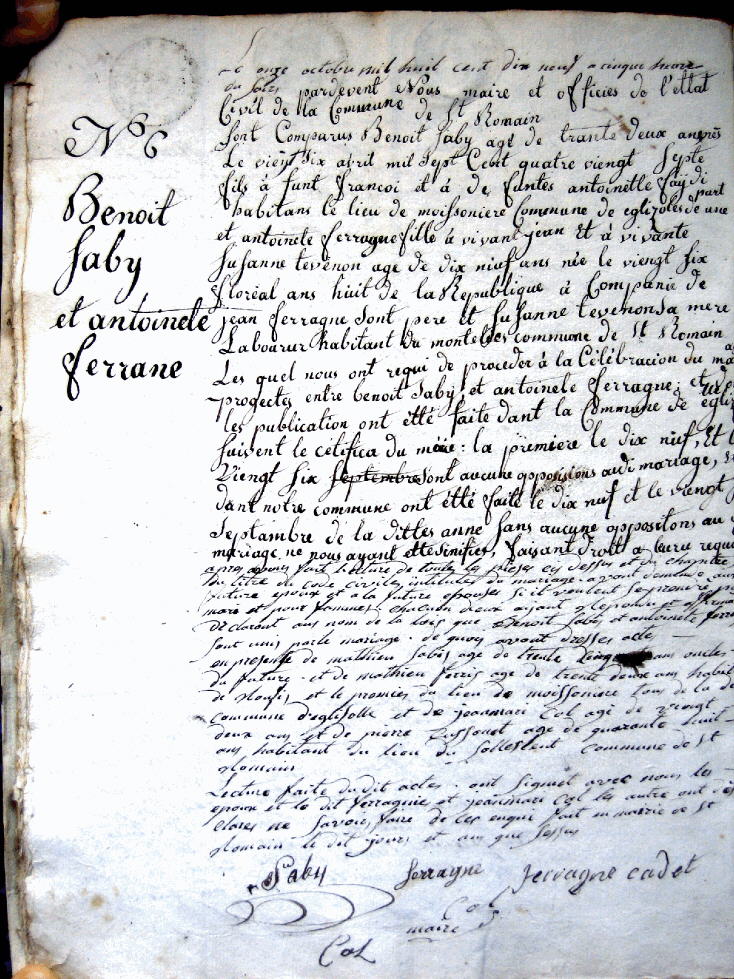 N° 6
Benoit
Saby
et antoinete
ferrane
Le onze octobre mil huit cent dix neuf a cinque heure
du soir pardevent Nous maire et officies de l'ettat
Civil de la Commune de St Romain
Sont Comparus Benoit Saby age de trante deux anneés
Le vient six avril mil Sept Cent quatre viengt Septe
fils à funt francoi et à de funtes antoinette faydi
habitans le lieu de moissoniere Commune de eglizoles de une part
et antoinete ferragne fille à vivant jean et à vivante
Susanne tevenon age de dix nieuf ans née le viengt six
floréal ans huit de la Republique à Companie de
jean ferragne sont pere et Susanne tevenon sa mere
Labourur habitant du monteles commune de St Romain
Les quel nous ont requi de proceder à la Célébracion du ma
progectes entre benoit Saby et antoinete ferragne; et
les publication ont étté faite dant la Commune de egliz
suivent le cétifica du maire: la premiere le dix neuf, Et l
Viengt six Septembre sont aucune opposisions audi mariage,
dant notre commune ont étté faite le dix nuf et le viengt
Septambre de la dittes anne sans aucune oppositons au
mariage ne nous ayant ette sinifies, faisant droit a leure requi
apres avoir fait lecture de toute les pieses cy dessus et du chapitre
du titre du code civiles intitules du mariage avont demande aux
future epoux et a la future epouses si il veulent se prendre p
mari et pour fammes chacun deux aiant repondu et affirma
declaront aus nom de la lois que Benoit Saby et antoinete ferra
Sont unis par le mariage de quoy avont dresses acte
en presente de mathieu Sabÿ age de trente ans oncles
du future et de mathieu ferris age de trente deux ans habit
de et le premier du lieu de moissoniere tous de la d
commune deglisolle et de jeanmari Col age de vingt
deux ans et de pierre age de quarante huit
ans habitant du lieu du commune de St
Romain
Lecture faite du dit actes ont signet avec nous les
epoux et le dit ferragnie et jeanmari Col les autre ont dé
clares ne savoir faire de ces enque fait en mairie de St
Romain le dit jours et ans que dessus
Saby
ferragne
ferragne cadet
Col
maire
Col